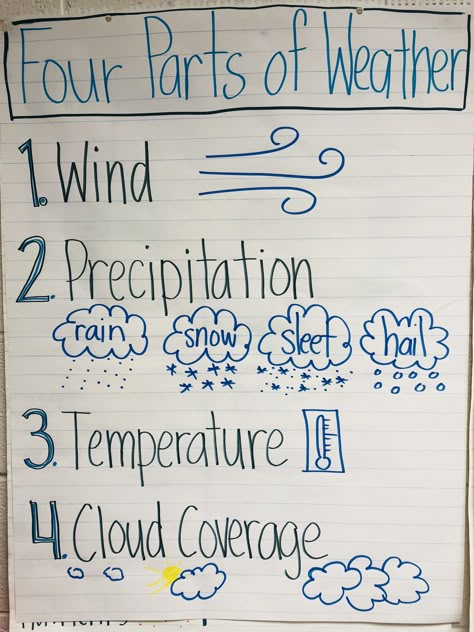 Four Parts of Weather
1. Wind
2. Precipitation
rain snow sleet hail
3. Temperature
4. Cloud Coverage